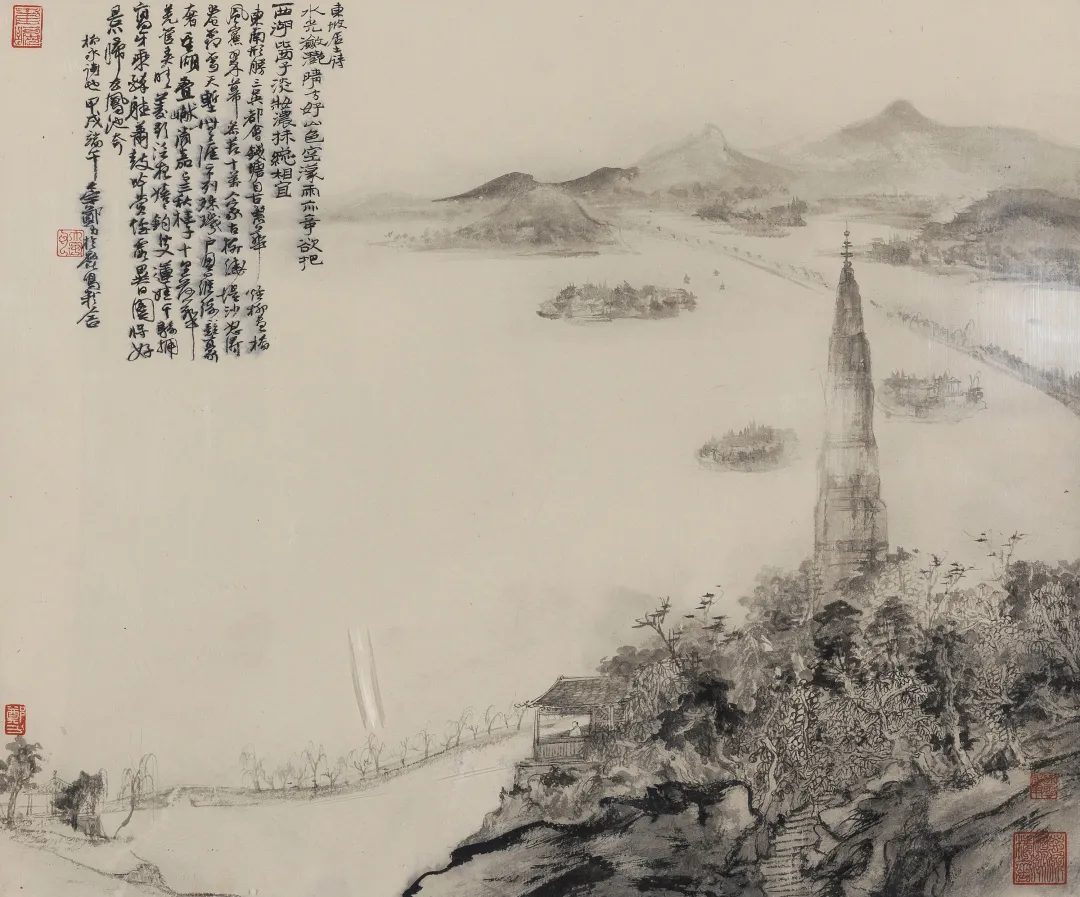 東坡居士詩
水光瀲灩晴方好山色空濛雨亦奇欲把
西湖比西子淡妝濃抹總相宜
東南形勝三吳都會錢塘自古繁華煙柳畫橋
風簾翠幕參差十萬人家雲樹繞堤沙怒濤
卷霜雪天塹無涯市列珠璣戶盈羅綺競豪
奢重湖疊巘清嘉有三秋桂子十里荷花
羌管弄晴菱歌泛夜嬉嬉釣叟蓮娃千騎擁
高牙乘醉聽簫鼓吟賞煙霞異日圖將好
景歸去鳳池夸
柳永詞也甲戌端午